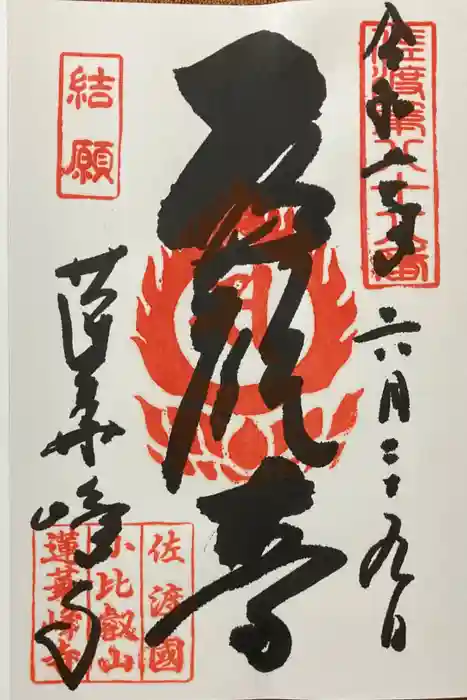 佐渡第八十八番
令和二年
六月二十九日
結願
蓮華峰寺
佐渡國
小比叡山
蓮華峰寺